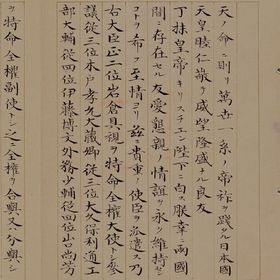 天ノ命ニ則リ萬世一系ノ帝祚ヲ踐タル日本國
天皇睦仁敬テ威望隆盛ナル良友
丁抹皇帝キリスチエン陛下ニ白ス朕幸ニ両國
間ニ存在セル友愛懇親ノ情誼ヲ永ク維持セン
コトヲ希フ至情ヨリ茲ニ貴重ノ使臣ヲ派遣ス乃
右大臣正二位岩倉具視ヲ特命全權大使トシ參
議從三位木戸孝允大藏卿從三位大久保利通工
部大輔從四位伊藤博文外務少輔從四位山口尚芳
ヲ特命全權副使トシ之ニ全權ヲ合與又分與